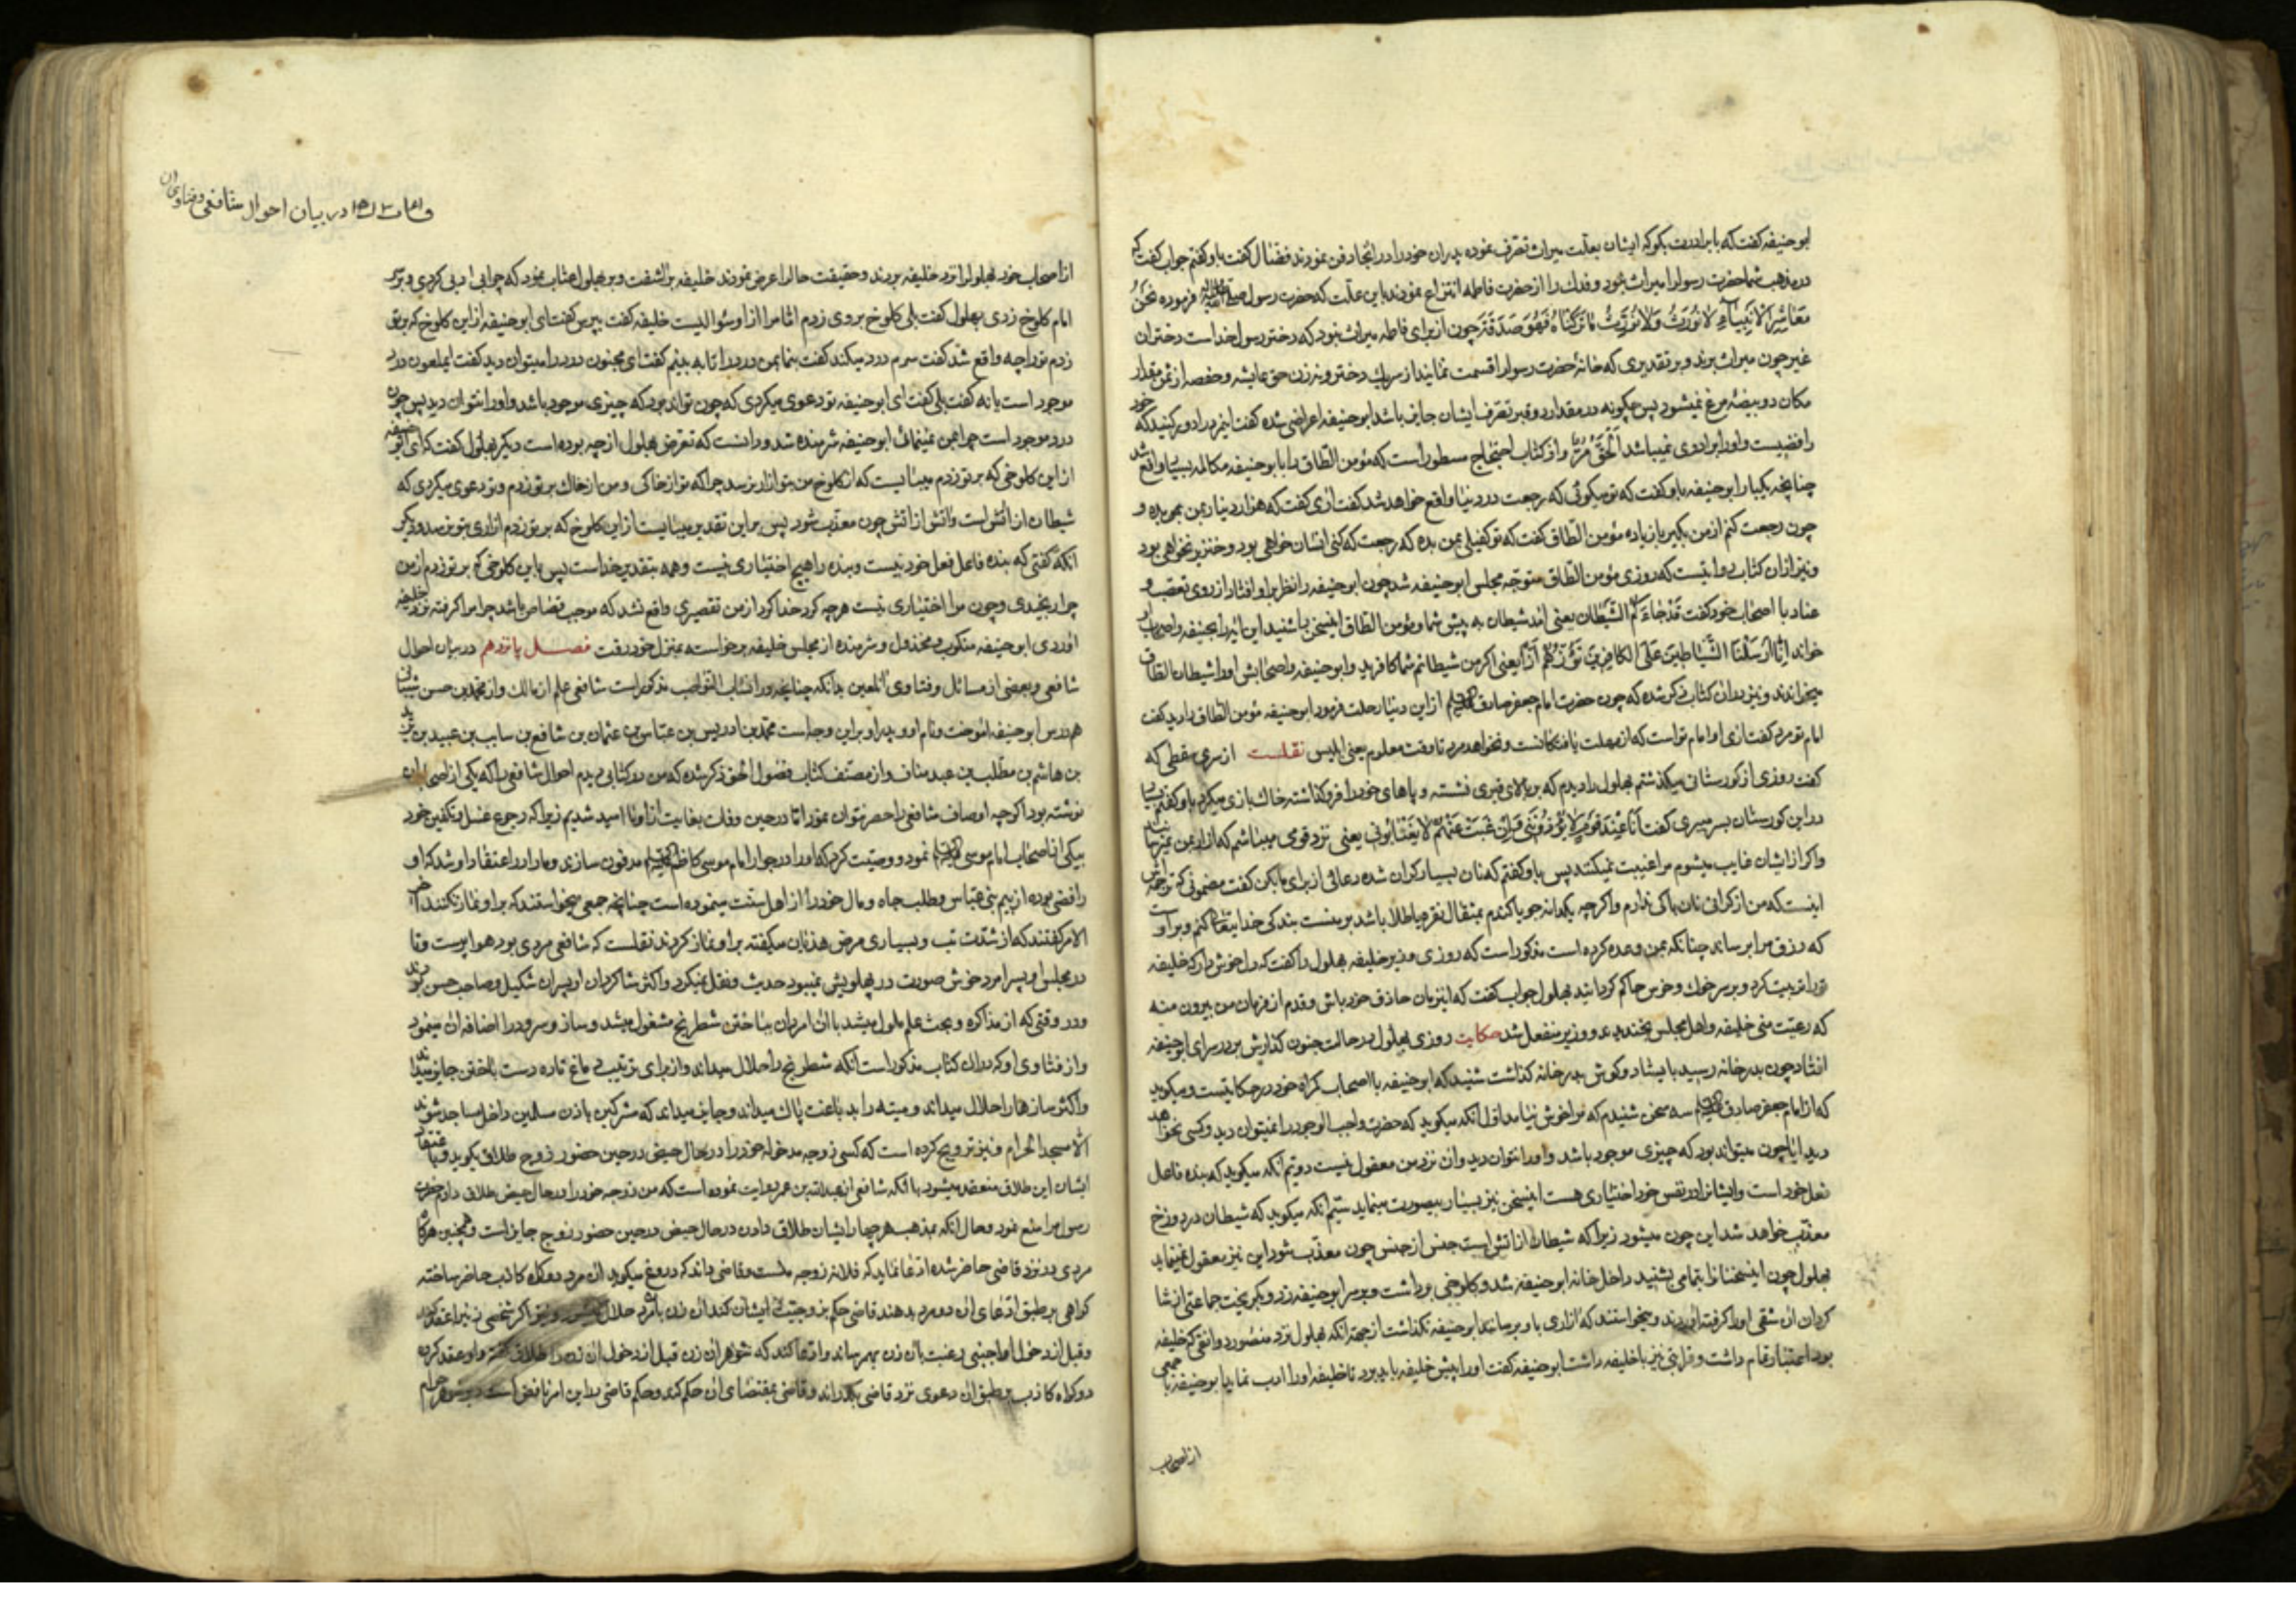 ابوحنیفه کفت که با برادرت بکو که ایشان بعلت میراث تصرف نموده پدران خود را در انجا دفن نمودند فضال کفت باو کفتم جواب کفت که
در مذهب شما حضرت رسول را میراث نبود و فدک را از حضرت فاطمه انتزاع نمودند باین علت که حضرت رسول فرموده نحن
معاشر الانبیاء لا نورث ولا نورث ما ترکناه فهو صدقة چون از برای فاطمه میراث نبود که دختر رسول خداست دختران
غیر چون میراث برند و بر تقدیری که خانهٔ حضرت رسول را قسمت نمایند از میراث دختر و نه زن حق عایشه و حفصه از ثمن مقدار
مکان دو بیضهٔ مرغ نمیشود پس چکونه در مقدار دو قبر تصرف ایشان جایز باشد ابوحنیفه اعراضی شده کفت اینمرد را دور کنید که خود
رافضیست و او را برادری نمیباشد الحق مر و از کتاب احتجاج مسطور است که مؤمن الطاق را با ابوحنیفه مکالمه بسیار واقع شد
چنانچه یکبار ابوحنیفه باو کفت که تو میکوئی که رجعت در دنیا واقع خواهد شد کفت اری کفت که هزار دینار بمن بده و
چون رجعت کنم از من بکیر با زیاده مؤمن الطاق کفت که تو کفیلی بمن بده که رجعت که کنی انسان خواهی بود و خنزیر نخواهی بود
و نیز از ان کتاب روایتست که روزی مؤمن الطاق متوجه مجلس ابوحنیفه شد چون ابوحنیفه را نظر بر او افتاد از روی تعصب و
عناد با اصحاب خود کفت قد جاءکم الشیطان یعنی امد شیطان به پیش شما و مؤمن الطاق اینسخن را شنید این ایه را بابوحنیفه و اصحاب او
خواند انا ارسلنا الشیاطین علی الکافرین تؤزهم ازا یعنی اکر من شیطانم شما کافرید و ابوحنیفه و اصحابش او را شیطان الطاق
میخواندند و نیز در ان کتاب ذکر شده که چون حضرت امام جعفر صادق از این دنیا رحلت فرمود ابوحنیفه مؤمن الطاق را دید کفت
امام تو مرد کفت اری اما امام تو است که از مهلت یافتکانست و نخواهد مرد تا وقت معلوم یعنی ابلیس نقلست از سری سقطی که
کفت روزی از کورستانی میکذشتم بهلول را دیدم که بر بالای قبری نشسته و پاهای خود را فرو کذاشته خاک بازی میکرد باو کفتم
در این کورستان بسر میبری کفت انا عند قوم لا یؤذوننی و ان غبت عنهم لا یغتابونی یعنی نزد قومی میباشم که ازار بمن نمیرسانند
واکر از ایشان غایب میشوم مرا غیبت نمیکنند پس باو کفتم که نان بسیار کران شده دعائی از برای ما بکن کفت مضمونی که ترجمه اش
اینست که من از کرانی نان باکی ندارم واکرچه یکدانه جو یا کندم بمثقال نقره یا طلا باشد بر منست بندکی خدا کنم و بر اوست
که رزق مرا برساند چنانکه بمن وعده کرده است مذکور است که روزی وزیر خلیفه بهلول را کفت که دل خوش دار که خلیفه
تو را تربیت کرد و بر سر خوک و خرس حاکم کردانید بهلول جواب کفت که اینزمان حاذق خود باش و قدم از فرمان من بیرون منه
که رعیت منی خلیفه و اهل مجلس بخندیدند و وزیر منفعل شد حکایت روزی بهلول در حالت جنون کذارش بر در سرای ابوحنیفه
افتاد چون بدر خانه رسید بایستاد و کوش بدر خانه کذاشت شنید که ابوحنیفه با اصحاب کمراه خود در حکایتست و میکوید
که از امام جعفر صادق سه سخن شنیدم که مرا خوش نیامد اول انکه میکوید که حضرت واجب الوجود را نمیتوان دید و کسی نخواهد
دید ایا چون میتواند بود که چیزی موجود باشد و او را نتوان دید و ان نزد من معقول نیست دوم انکه میکوید که بنده فاعل
فعل خود است و ایشانرا در نفس خود اختیاری هست اینسخن نیز بسیار بیصورت مینماید سیم انکه میکوید که شیطان در دوزخ
معذب خواهد شد این چون میشود زیرا که شیطان از اتش است جنس از جنس چون معذب شود این نیز معقول نمینماید
بهلول چون اینسخنانرا بتمامی بشنید داخل خانهٔ ابوحنیفه شد و کلوخی برداشت و بر سر ابوحنیفه زد و بکریخت جماعتی از شا
کردان ان شقی او را کرفته اوردند و میخواستند که ازاری باو برسانند ابوحنیفه نکذاشت از جهة انکه بهلول نزد منصور دوانقی که خلیفه
بود اعتبار تمام داشت و قرابتی نیز با خلیفه داشت ابوحنیفه کفت او را پیش خلیفه باید برد تا خلیفه او را ادب نماید ابوحنیفه با جمعی
از اصحاب
در بیان احوال شافعی و فتاوی ان
از اصحاب خود بهلول را نزد خلیفه بردند و حقیقت حال را عرض نمودند خلیفه بر اشفت و بر بهلول اعتاب نمود که چرا بی ادبی کردی و بر سر
امام کلوخ زدی بهلول کفت بلی کلوخ بر وی زدم اما مرا از او سؤالیست خلیفه کفت بپرس کفت ای ابوحنیفه از این کلوخ که بر تو
زدم تو را چه واقع شد کفت سرم درد میکند کفت بنما بمن درد را تا به بینم کفت ای مجنون درد را میتوان دید کفت ایملعون درد
موجود است یا نه کفت بلی کفت ای ابوحنیفه تو دعوی میکردی که چون تواند بود که چیزی موجود باشد و او را نتوان دید پس چون
درد موجود است چرا بمن نمینمائی ابوحنیفه شرمنده شد و دانست که تعرض بهلول از چه بوده است دیکر بهلول کفت که ای ابوحنیفه
از این کلوخی که بر تو زدم میبایست که از کلوخ من بتو ازار نرسد چرا که تو از خاکی و من از خاک بر تو زدم و تو دعوی میکردی که
شیطان از اتش است و اتش از اتش چون معذب شود پس بر این تقدیر میبایست از این کلوخ که بر تو زدم ازاری بتو نرسد و دیکر
انکه کفتی که بنده فاعل فعل خود نیست و بنده را هیچ اختیاری نیست و همه بتقدیر خداست پس باین کلوخی که بر تو زدم از من
چرا رنجیدی و چون مرا اختیاری نیست هرچه کرد خدا کرد از من تقصیری واقع نشد که موجب قصاص باشد چرا مرا کرفته نزد خلیفه
اوردی ابوحنیفه منکوب و مخذول و شرمنده از مجلس خلیفه برخواسته بمنزل خود رفت فصـــل پانزدهم در بیان احوال
شافعی و بعضی از مسائل و فتاوی ان لعین بدانکه چنانچه در انساب النواصب مذکور است شافعی علم از مالک و از محمد بن حسن شیبانی
هم درس ابوحنیفه اموخت و نام او و پدر او بر این وجه است محمد بن ادریس بن عباس بن عثمان بن شافع بن سایب بن عبید بن
بن هاشم بن مطلب بن عبد مناف و از مصنف کتاب فصول الحق ذکر شده که من در کتابی دیدم احوال شافعی را که یکی از اصحاب ان
نوشته بود اکرچه اوصاف شافعی را حصر نتوان نمود اما در حین وفات بغایت از او نا امید شدیم زیرا که رجوع غسل و تکفین خود
بیکی از اصحاب امام موسی نمود و وصیت کرد که او را در جوار امام موسی کاظم مدفون سازند و ما را در اعتقاد او شد که او
رافضی بوده از بیم بنی عباس و طلب جاه و مال خود را از اهل سنت مینموده است چنانچه جمعی میخواستند که بر او نماز نکنند اخر
الامر کفتند که از شدت تب و بسیاری مرض هذیان میکفته بر او نماز کردند نقلست که شافعی مردی بود هواپرست و تا
در مجلس او پسر امرد خوش صورت در پهلویش نمیبود حدیث و نقل نمیکرد و اکثر شاکردان او پسران شکیل و صاحب حسن بودند
و در وقتی که از مذاکره و بحث علم ملول میشد با ان امردان بباختن شطرنج مشغول میشد و ساز و سرود را اضافه ان مینمود
و از فتاوی او که در ان کتاب مذکور است انکه شطرنج را حلال میداند و از برای ترتیب دماغ تازه دست باختن جایز میداند
واکثر سازها را حلال میداند و میته را بدباغت پاک میداند و جایز میداند که مشرکین باذن مسلمین داخل مساجد شوند
الا مسجد الحرام و نیز ترویج کرده است که کسی زوجهٔ مدخوله خود را در حال حیض در حین حضور زوج طلاق بکوید و باعتقاد
ایشان این طلاق منعقد میشود با انکه شافعی از عبدالله بن عمر روایت نموده است که من زوجهٔ خود را در حال حیض طلاق دادم حضرت
رسول مرا منع نمود و حال انکه بمذهب هر چهار ایشان طلاق دادن در حال حیض در حین حضور زوج جایز است و همچنین هرکاه
مردی در نزد قاضی حاضر شده ادعا نماید که فلانه زوجهٔ منست و قاضی داند که دروغ میکوید ان مرد دو کواه کاذب حاضر ساخته
کواهی بر طبق ادعای ان دو مرد بدهند قاضی حکم بزوجیت ایشان کند ان زن بانمرد حلال میشود و نیز اکر شخصی زنیرا عقد کند
و قبل از دخول او اجنبی رغبت بان زن بهم رساند و ادعا کند که شوهر ان زن قبل از دخول ان زن را طلاق کفته و او عقد کرده
دو کواه کاذب بر طبق ان دعوی نزد قاضی بکذراند و قاضی بمقتضای ان حکم کند و حکم قاضی در این امر نافذ است